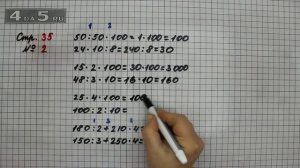 4DA5.RU
Стр. 35
№ 2
1 2
50:50·100=1·100=100
24·10:8=240:8=30
15·2·100=30·100=3000
48:3·10=16·10=160
25·4·100=100
100:2:10=
1 3 2
180:2+210·4=
150:3+250·4=